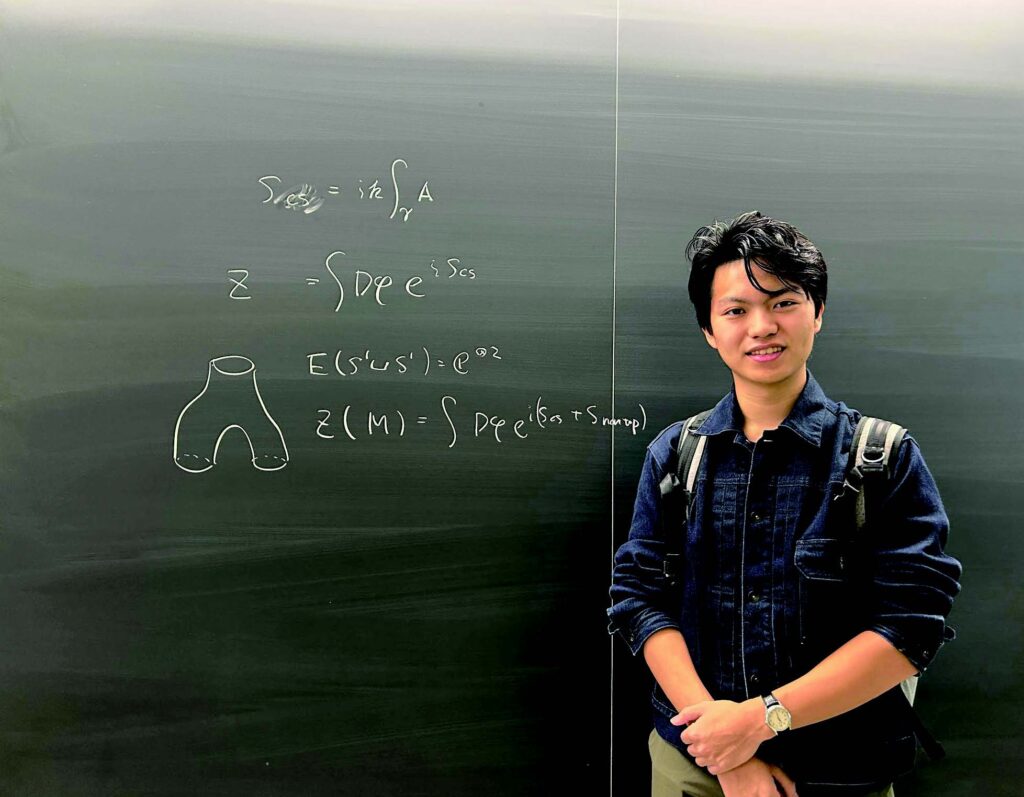 S = ik∫_γ A
Z = ∫Dφ e^{i S_cs}
E(S¹⊔S¹) = e^{⊗2}
Z(M) = ∫ Dφ e^{i(S_cs + S_nontop)}